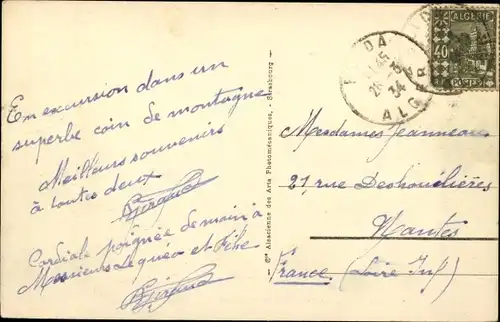 En excursion dans un
superbe coin de montagne
Meilleurs souvenirs
à toutes deux
Cordiale poignée de main à
Messieurs Lequéo et File
Cie Alsacienne des Arts Photomécaniques, - Strasbourg -
DA
26 -3
34
ALGER
ALGERIE
40
POSTES
Mesdames Jeanneau
21, rue Deshoulières
Nantes
France (Loire Inf)